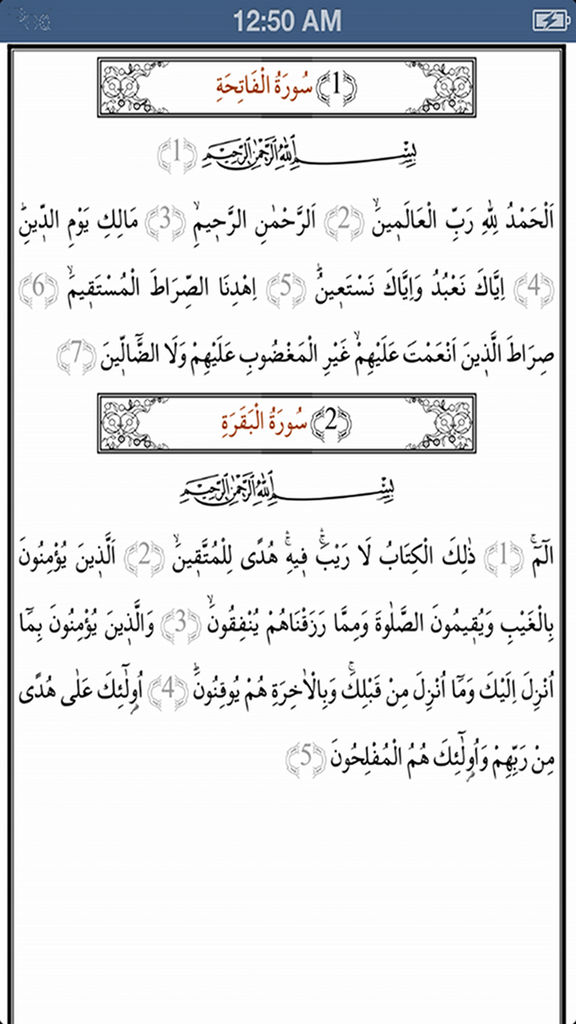 12:50 AM
﴿1﴾ سُورَةُ الْفَاتِحَةِ
بِسْمِ اللّٰهِ الرَّحْمٰنِ الرَّحِيمِ ﴿1﴾
اَلْحَمْدُ لِلّٰهِ رَبِّ الْعَالَمٖينَۙ ﴿2﴾ اَلرَّحْمٰنِ الرَّحٖيمِۙ ﴿3﴾ مَالِكِ يَوْمِ الدّٖينِؕ
﴿4﴾ اِيَّاكَ نَعْبُدُ وَاِيَّاكَ نَسْتَعٖينُؕ ﴿5﴾ اِهْدِنَا الصِّرَاطَ الْمُسْتَقٖيمَۙ ﴿6﴾
صِرَاطَ الَّذٖينَ اَنْعَمْتَ عَلَيْهِمْۙ غَيْرِ الْمَغْضُوبِ عَلَيْهِمْ وَلَا الضَّٓالّٖينَ ﴿7﴾
﴿2﴾ سُورَةُ الْبَقَرَةِ
بِسْمِ اللّٰهِ الرَّحْمٰنِ الرَّحِيمِ
الٓمٓۚ ﴿1﴾ ذٰلِكَ الْكِتَابُ لَا رَيْبَۚۛ فٖيهِۚۛ هُدًى لِلْمُتَّقٖينَۙ ﴿2﴾ اَلَّذٖينَ يُؤْمِنُونَ
بِالْغَيْبِ وَيُقٖيمُونَ الصَّلٰوةَ وَمِمَّا رَزَقْنَاهُمْ يُنْفِقُونَۙ ﴿3﴾ وَالَّذٖينَ يُؤْمِنُونَ بِمَٓا
اُنْزِلَ اِلَيْكَ وَمَٓا اُنْزِلَ مِنْ قَبْلِكَۚ وَبِالْاٰخِرَةِ هُمْ يُوقِنُونَؕ ﴿4﴾ اُولٰٓئِكَ عَلٰى هُدًى
مِنْ رَبِّهِمْ وَاُولٰٓئِكَ هُمُ الْمُفْلِحُونَ ﴿5﴾